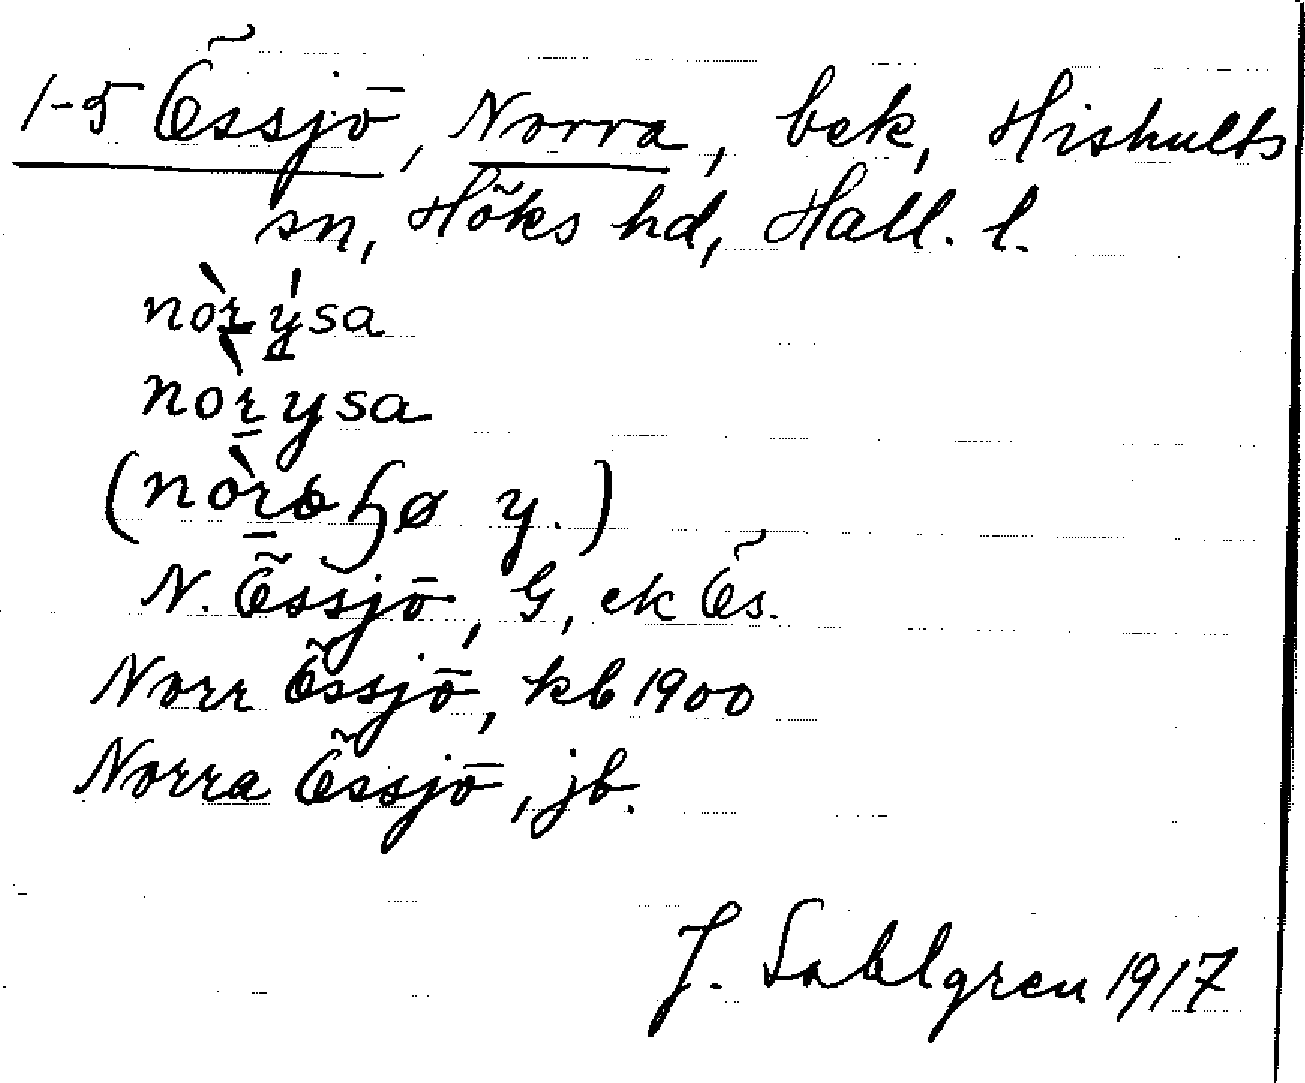 1-5 Össjö, Norra, bek, Hishults
sn, Höks hd, Hall. l.
nòr ýsa
nòr ysa
(nòrə ɧø y.)
N. Össjö, G, ek Ös.
Norr Össjö, kb 1900
Norra Össjö, jb.
J. Sahlgren 1917